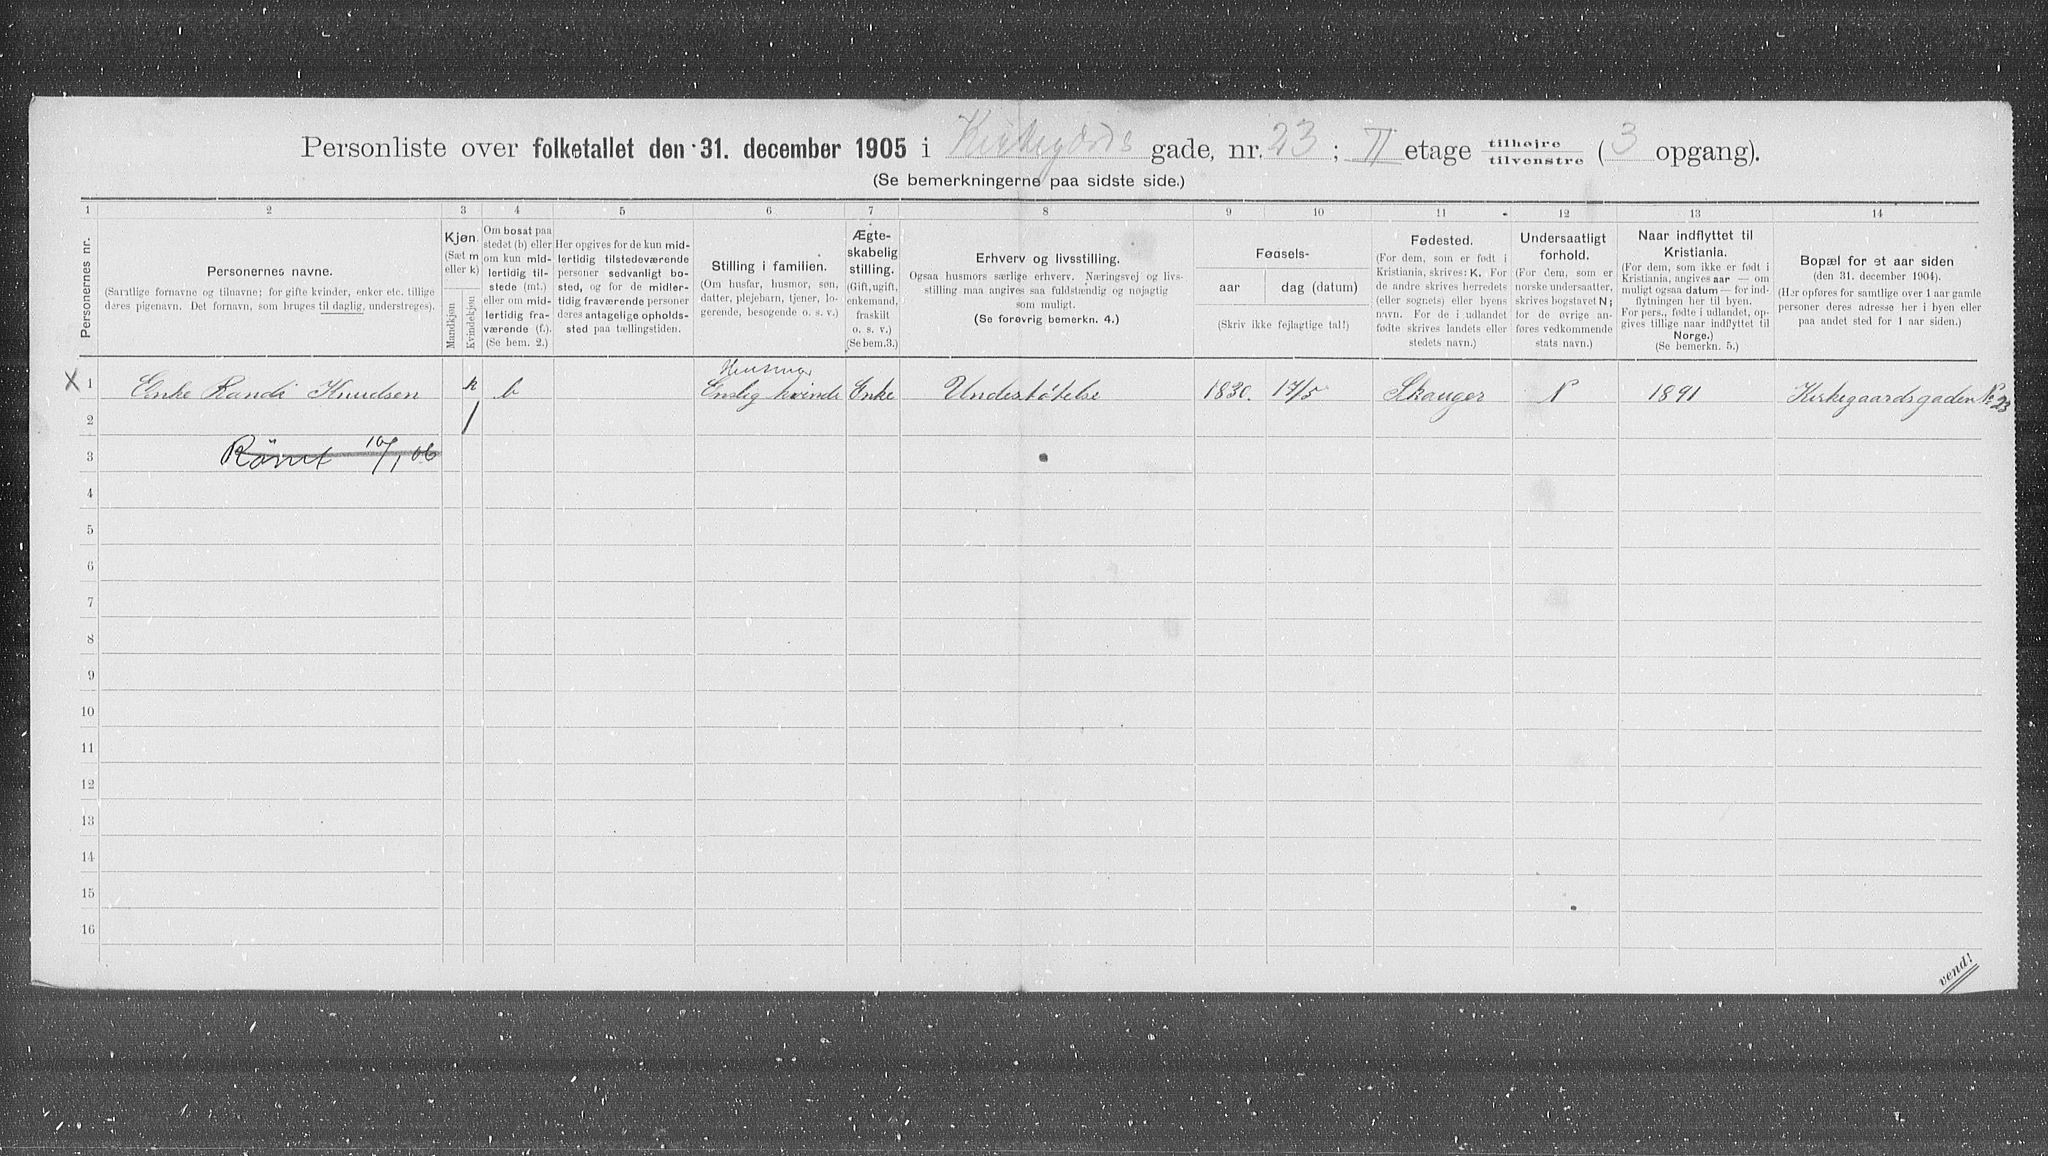 Personliste over folketallet den 31. december 1905 i Kirkegårds gade, nr. 23 ; II etage tilhøjre tilvenstre ( 3 opgang).
(Se bemerkningerne paa sidste side.)
1 2 3 4 5 6 7 8 9 10 11 12 13 14
Personernes nr.
Personernes navne.
(Samtlige fornavne og tilnavne; for gifte kvinder, enker etc. tillige
deres pigenavn. Det fornavn, som bruges til daglig, understreges).
Kjøn.
(Sæt m
eller k)
Mandkjøn
Kvindekjøn
Om bosat paa
stedet (b) eller
om kun mid-
lertidig til-
stede (mt.)
eller om mid-
lertidig fra-
værende (f.).
(Se bem. 2.)
Her opgives for de kun mid-
lertidig tilstedeværende
personer sedvanligt bo-
sted, og for de midler-
tidig fraværende personer
deres antagelige opholds-
sted paa tællingstiden.
Stilling i familien.
(Om husfar, husmor, søn,
datter, plejebarn, tjener, lo-
gerende, besøgende o. s. v.)
Ægte-
skabelig
stilling.
(Gift, ugift,
enkemand,
fraskilt
o. s. v.)
(Se bem.3.)
Erhverv og livsstilling.
Ogsaa husmors særlige erhverv. Næringsvej og livs-
stilling maa angives saa fuldstændig og nøjagtig
som muligt.
(Se forøvrig bemerkn. 4.)
Føasels-
aar
dag (datum)
(Skriv ikke fejlagtige tal!)
Fødested.
(For dem, som er født i
Kristiania, skrives: K. For
de andre skrives herredets
(eller sognets) eller byens
navn. For de i udlandet
fødte skrives landets eller
stedets navn.)
Undersaatligt
forhold.
(For dem, som er
norske undersaatter,
skrives bogstavet N;
for de øvrige an-
føres vedkommende
stats navn.)
Naar indflyttet til
Kristiania.
(For dem, som ikke er født i
Kristiania, angives aar — om
muligt ogsaa datum — for ind-
flytningen her til byen.
For pers., fødte i udlandet, op-
gives tillige naar indflyttet til
Norge.)
(Se bemerkn. 5.)
Bopæl for et aar siden
(den 31. december 1904).
(Her opføres for samtlige over 1 aar gamle
personer deres adresse her i byen eller
paa andet sted for 1 aar siden.)
Husmor
X 1 Enke Randi Knudsen k b Enslig kvinde Enke Understøtelse 1830. 17/5 Skauger N 1891 Kirkegaardsgaden No 23
2 1
3 10/1 06
4
5
6
7
8
9
10
11
12
13
14
15
16
vend!